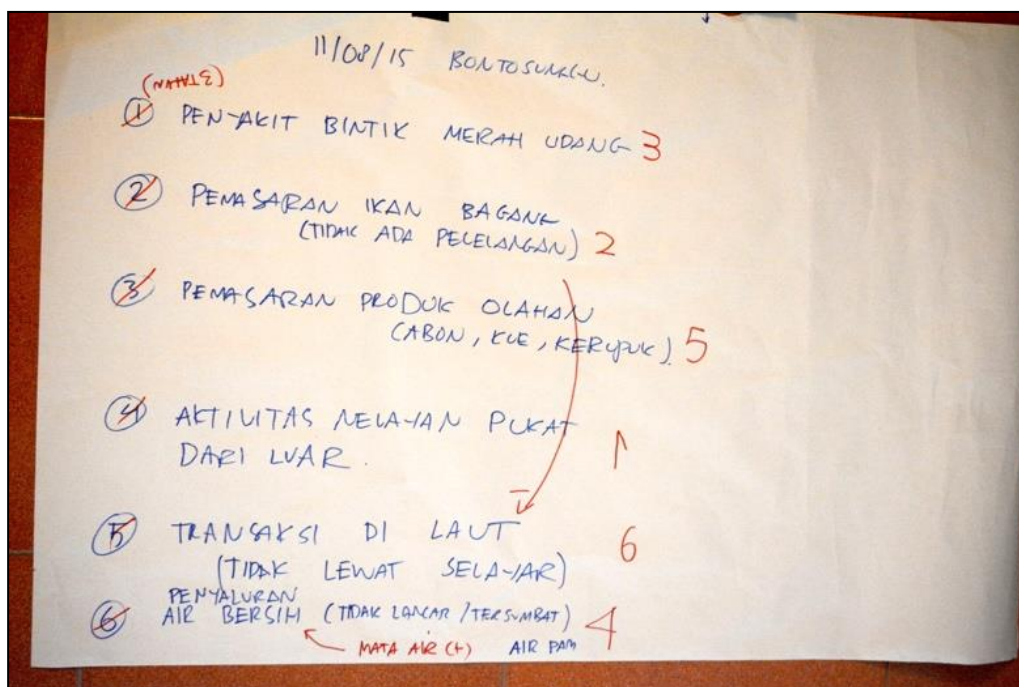 11/08/15 BONTOSUNGGU.
(3 TAHAN)
1 PENYAKIT BINTIK MERAH UDANG 3
2 PEMASARAN IKAN BAGANG
(TIDAK ADA PELELANGAN) 2
3 PEMASARAN PRODUK OLAHAN
(ABON, KUE, KERUPUK). 5
4 AKTIVITAS NELAYAN PUKAT
DARI LUAR. 1
5 TRANSAKSI DI LAUT 6
(TIDAK LEWAT SELAYAR)
PENYALURAN
6 AIR BERSIH (TIDAK LANCAR / TERSUMBAT) 4
MATA AIR (+) AIR PAM